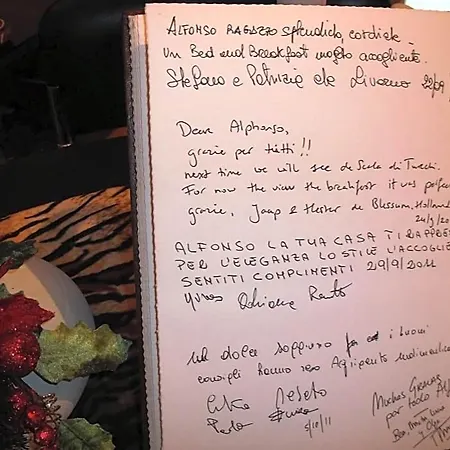 ALFONSO RAGAZZO splendido, cordiale -
un Bed and Breakfast molto accogliente.
Stefano e Patrizia da Livorno 22/09
Dear Alphonso,
grazie per tutti!!
next time we will see de Scala di Turchi.
For now the view the breakfast it was perfec
grazie, Jaap e Hester de Blessum, Holland
24/9/20
ALFONSO LA TUA CASA TI RAPPRE
PER L'ELEGANZA LO STILE L'ACCOGLIE
SENTITI COMPLIMENTI 29/9/2011
Renato
dolce soggiorno i buoni
consigli hanno reso Agrigento indimentica
5/10/11
Muchas Gracias
por todo Al